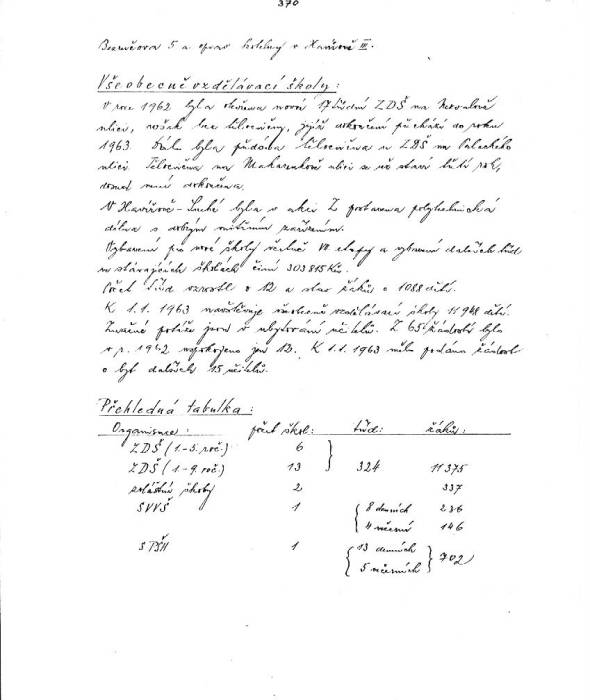 370
Bezručova 5 a oprav kotelny v Havířově III.
Všeobecně vzdělávací školy:
V roce 1962 byla otevřena nová 17 třídní ZDŠ na Nezvalově
ulici, avšak bez tělocvičny, jejíž dokončení přechází do roku
1963. Dále byla předána tělocvična u ZDŠ na Palackého
ulici. Tělocvična na Makarenkově ulici se už staví třetí rok,
dosud není dokončena.
V Havířově-Suché byla v akci Z postavena polytechnická
dílna s dobrým vnitřním zařízením.
Vybavení pro nové školy včetně VI etapy a vybavení dalších tříd
na stávajících školách činí 303 815 Kčs.
Počet tříd vzrostl o 12 a stav žáků o 1088 dětí.
K 1.1. 1963 navštěvuje všeobecně vzdělávací školy 11 948 dětí.
Značné potíže jsou v ubytování učitelů. Z 65 žádostí bylo
v r. 1962 uspokojeno jen 12. K 1.1. 1963 mělo podáno žádost
o byt dalších 15 učitelů.
Přehledná tabulka:
Organisace: počet škol: tříd: žáků:
ZDŠ (1.-5. roč.) 6
ZDŠ (1-9. roč.) 13 324 11 375
zvláštní školy 2 337
SVVŠ 1 8 denních 236
4 večerní 146
SPŠH 1 13 denních 702
5 večerních